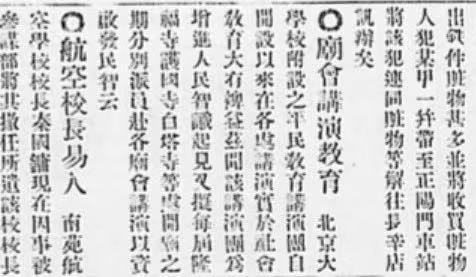 出穀件贓物甚多並將收買贓物
人犯某甲一幷帶至正陽門車站
將該犯連同贓物等解往長辛店
訊辦矣
◎廟會講演教育 北京大
學校附設之平民教育講演團自
開設以來在各處講演實於社會
教育大有裨益茲聞該講演團為
增進人民智識起見又擬每屆隆
福寺護國寺白塔寺等處開廟之
期分別派員赴各廟會講演以資
啟發民智云
◎航空校長易人 南苑航
空學校校長秦國鏞現在因事被
參謀部將其撤任所遺該校校長